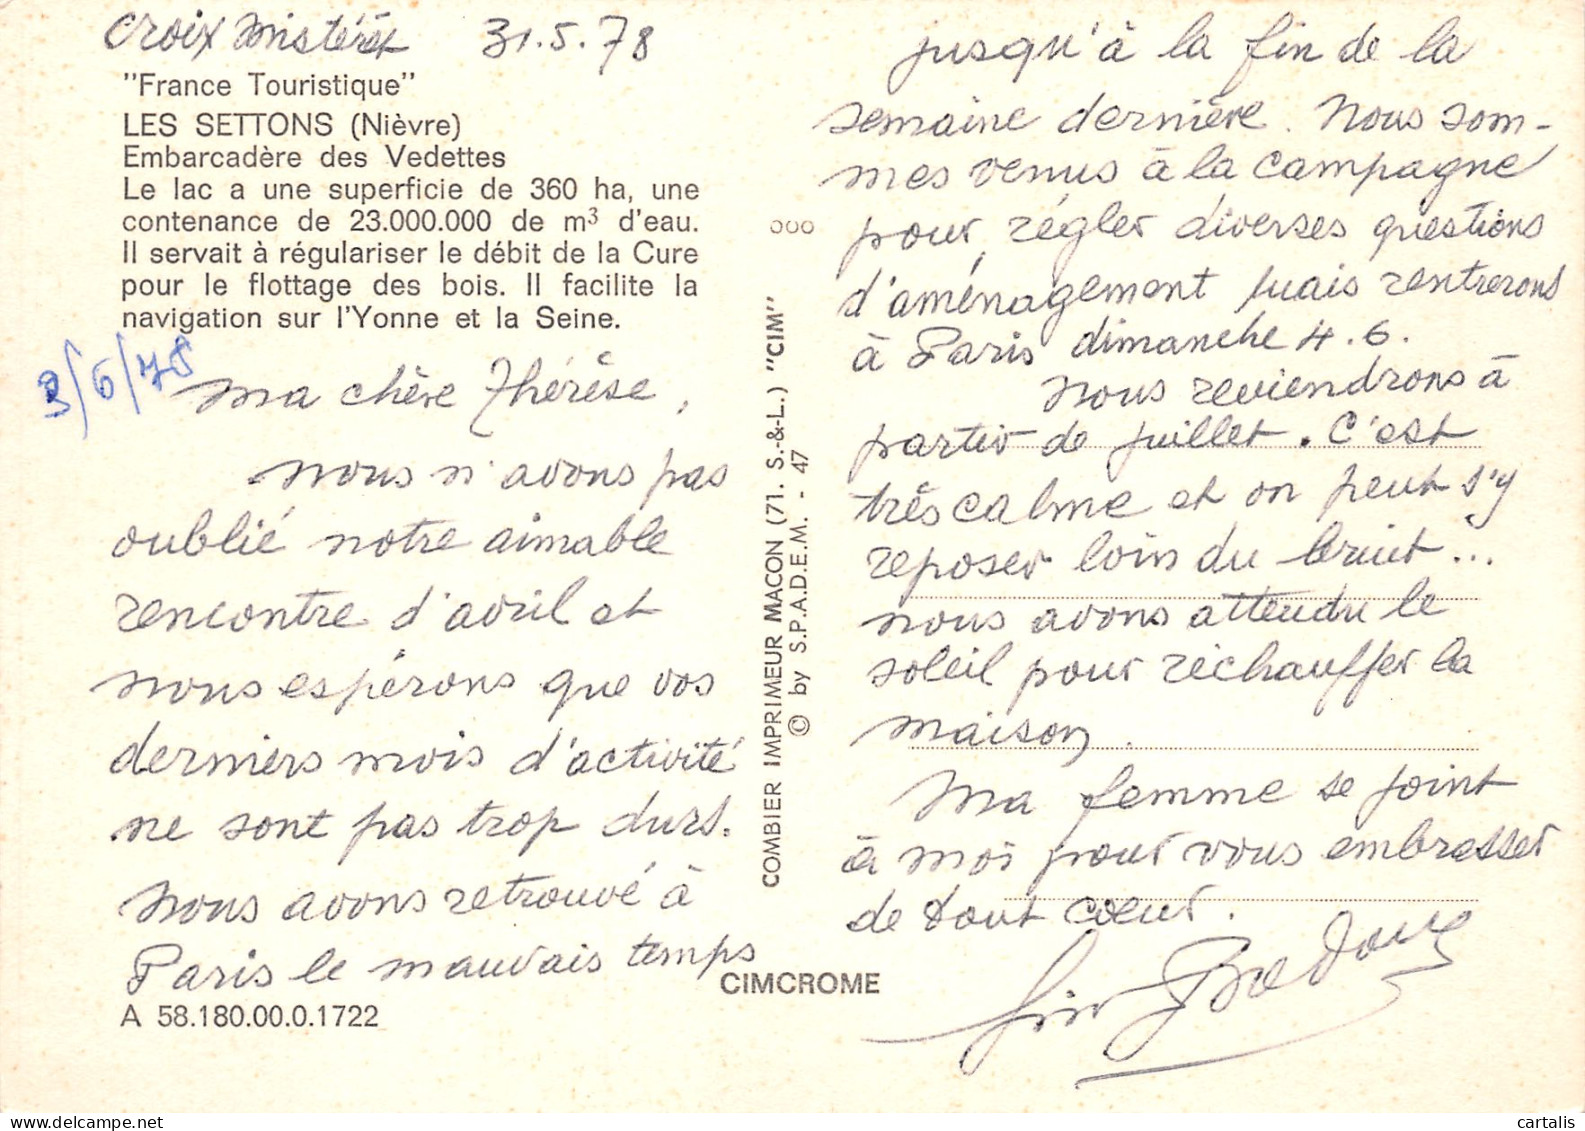 Croix 31.5.78
"France Touristique"
LES SETTONS (Nièvre)
Embarcadère des Vedettes
Le lac a une superficie de 360 ha, une
contenance de 23.000.000 de m³ d'eau.
Il servait à régulariser le débit de la Cure
pour le flottage des bois. Il facilite la
navigation sur l'Yonne et la Seine.
3/6/78
Ma chère Thérèse,
Nous n'avons pas
oublié notre aimable
rencontre d'avril et
nous espérons que vos
derniers mois d'activité
ne sont pas trop durs.
Nous avons retrouvé à
Paris le mauvais temps
A 58.180.00.0.1722
COMBIER IMPRIMEUR MACON (71. S.-&-L.) "CIM"
© by S.P.A.D.E.M. - 47
CIMCROME
jusqu'à la fin de la
semaine dernière. Nous som-
mes venus à la campagne
pour régler diverses questions
d'aménagement mais rentrerons
à Paris dimanche 4.6.
Nous reviendrons à
partir de juillet. C'est
très calme et on peut s'y
reposer loin du bruit...
nous avons attendu le
soleil pour réchauffer la
maison.
Ma femme se joint
à moi pour vous embrasser
de tout coeur.